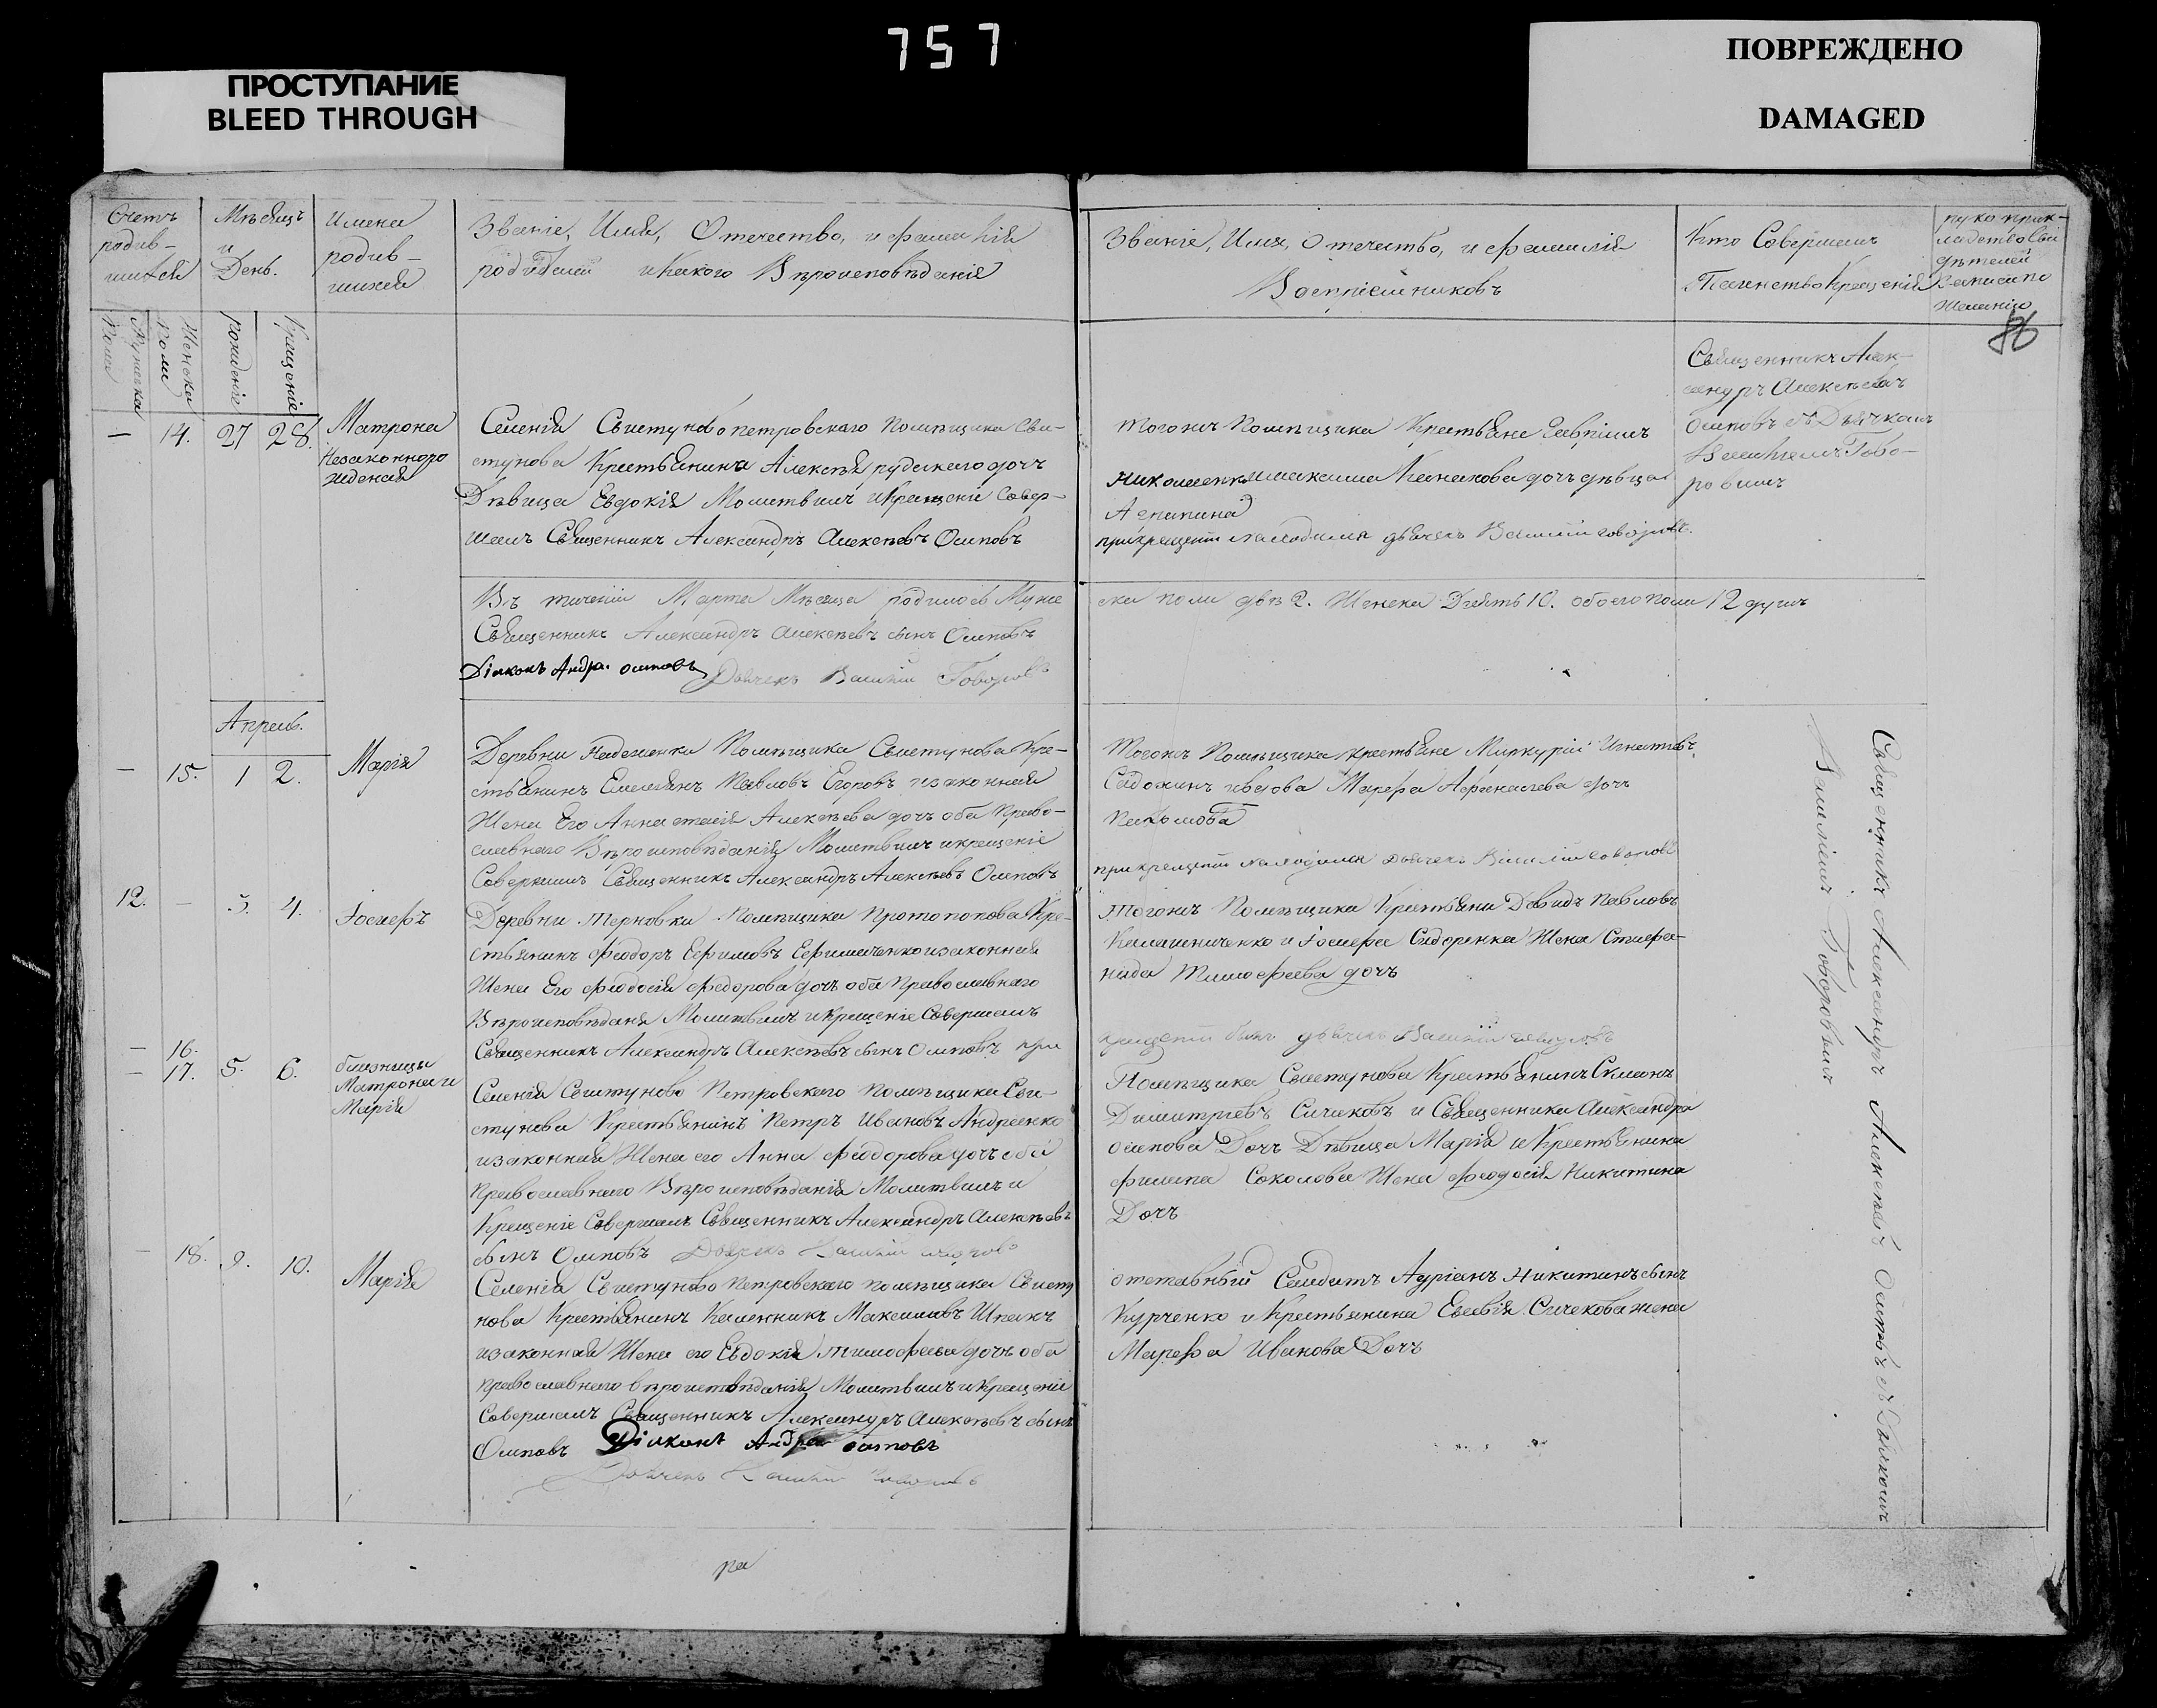 757
ПРОСТУПАНИЕ
BLEED THROUGH
ПОВРЕЖДЕНО
DAMAGED
Счетъ
родив-
шихся
Мѣсяцъ
и
День.
Имена
родив-
шихся
Званіе, Имя, Отечество, и фамилія
родителей и какого Вѣроисповѣданія
Званіе, Имя, Отечество, и фамилія
Воспріемниковъ
Кто Совершалъ
Таинство Крещенія
рукоприк-
ладство Сви
дѣтелей
Записи по
Желанію
86
Мужеска
Пола
Женска
Пола
рожденіе
крещеніе
— 14. 27 28.
Матрона
Незаконноро
жденая
Селенія Свистуново петровскаго Помѣщика Сви-
стунова Крестьянина Алексѣя рудскаго дочь
Дѣвица Евдокія Молитвилъ и Крещеніе Совер-
шалъ Священникъ Александръ Алексѣевъ Осиповъ
тогожъ Помѣщика Крестьяне
дочь дѣвица
Агрипина
прикрещеніи находился дьячекъ Василій Говоровъ.
Священникъ Алек-
сандръ Алексѣевъ
Осиповъ съ Дьячкомъ
Василіемъ Гово-
ровымъ
Въ теченіи Марта Мѣсяца родилось Муже
ска пола двѣ 2. Женска Десять 10. обоего пола 12 душъ
Священникъ Александръ Алексѣевъ сынъ Осиповъ
Діяконъ Андр. осиповъ Дьячекъ Василій Говоровъ
Апрель.
— 15. 1 2.
Марія
Деревни Надежевки Помѣщика Свистунова Кре-
стьянинъ Емельянъ Павловъ Егоровъ изаконная
Жена Его Анастасія Алексѣева дочь оба Право-
славнаго Вѣроисповѣданія Молитвилъ икрещеніе
Совершилъ Священникъ Александръ Алексѣевъ Осиповъ
Тогожъ Помѣщика крестьяне Меркурій Игнатьевъ
ивдова Марфа Афанасьева дочь
прикрещеніи находился дьячекъ Василій Говоровъ
12. — 3. 4.
Іосифъ
Деревни Терновки Помѣщика Протопопова Кре-
стьянинъ Феодоръ Ефимовъ изаконная
Жена Его Феодосія Федорова дочь оба Православнаго
Вѣроисповѣданя Молитвилъ икрещеніе Совершалъ
Священникъ Александръ Алексѣевъ сынъ Осиповъ при
Тогожъ Помѣщика Крестьяни Давидъ Павловъ
Калашниченко и Іосифа Сидоренка Жена Стефа-
нида Тимофеева дочь
крещеніи былъ дьячекъ Василій Говоровъ
— 16.
— 17. 5. 6.
близнецы
Матрона и
Марія
Селенія Свистуново Петровскаго Помѣщика Сви-
стунова Крестьянинъ Петръ Ивановъ Андреенко
изаконная Жена его Анна Феодорова дочь оба
Православнаго Вѣроисповѣданія Молитвилъ и
Крещеніе Совершалъ Священникъ Александръ Алексѣевъ
сынъ Осиповъ Дьячекъ Василій Говоровъ
Помѣщика Свистунова Крестьянинъ
Димитріевъ Сичковъ и Священника Александра
осипова Дочь Дѣвица Марія и Крестьянина
филипа Соколова Жена феодосія Никитина
Дочь
— 18. 9. 10.
Марія
Селенія Свистуново Петровскаго помѣщика Свисту
нова Крестьянинъ Каленникъ Максимовъ Шпакъ
изаконная Жена его Евдокія Тимофеева дочь оба
православнаго вѣроисповѣданія Молитвилъ икрещеніе
Совершалъ Священникъ Александръ Алексѣевъ сынъ
Осиповъ Діяконъ Андрей осиповъ
Дьячекъ Василій Говоровъ
отставный Салдатъ Адріанъ Никитинъ сынъ
Курченко и Крестьянина Евсевія Сичкова жена
Марфа Иванова Дочь
Священникъ Александръ Алексѣевъ Осиповъ съ Дьячкомъ
Василіемъ Говоровымъ
ра